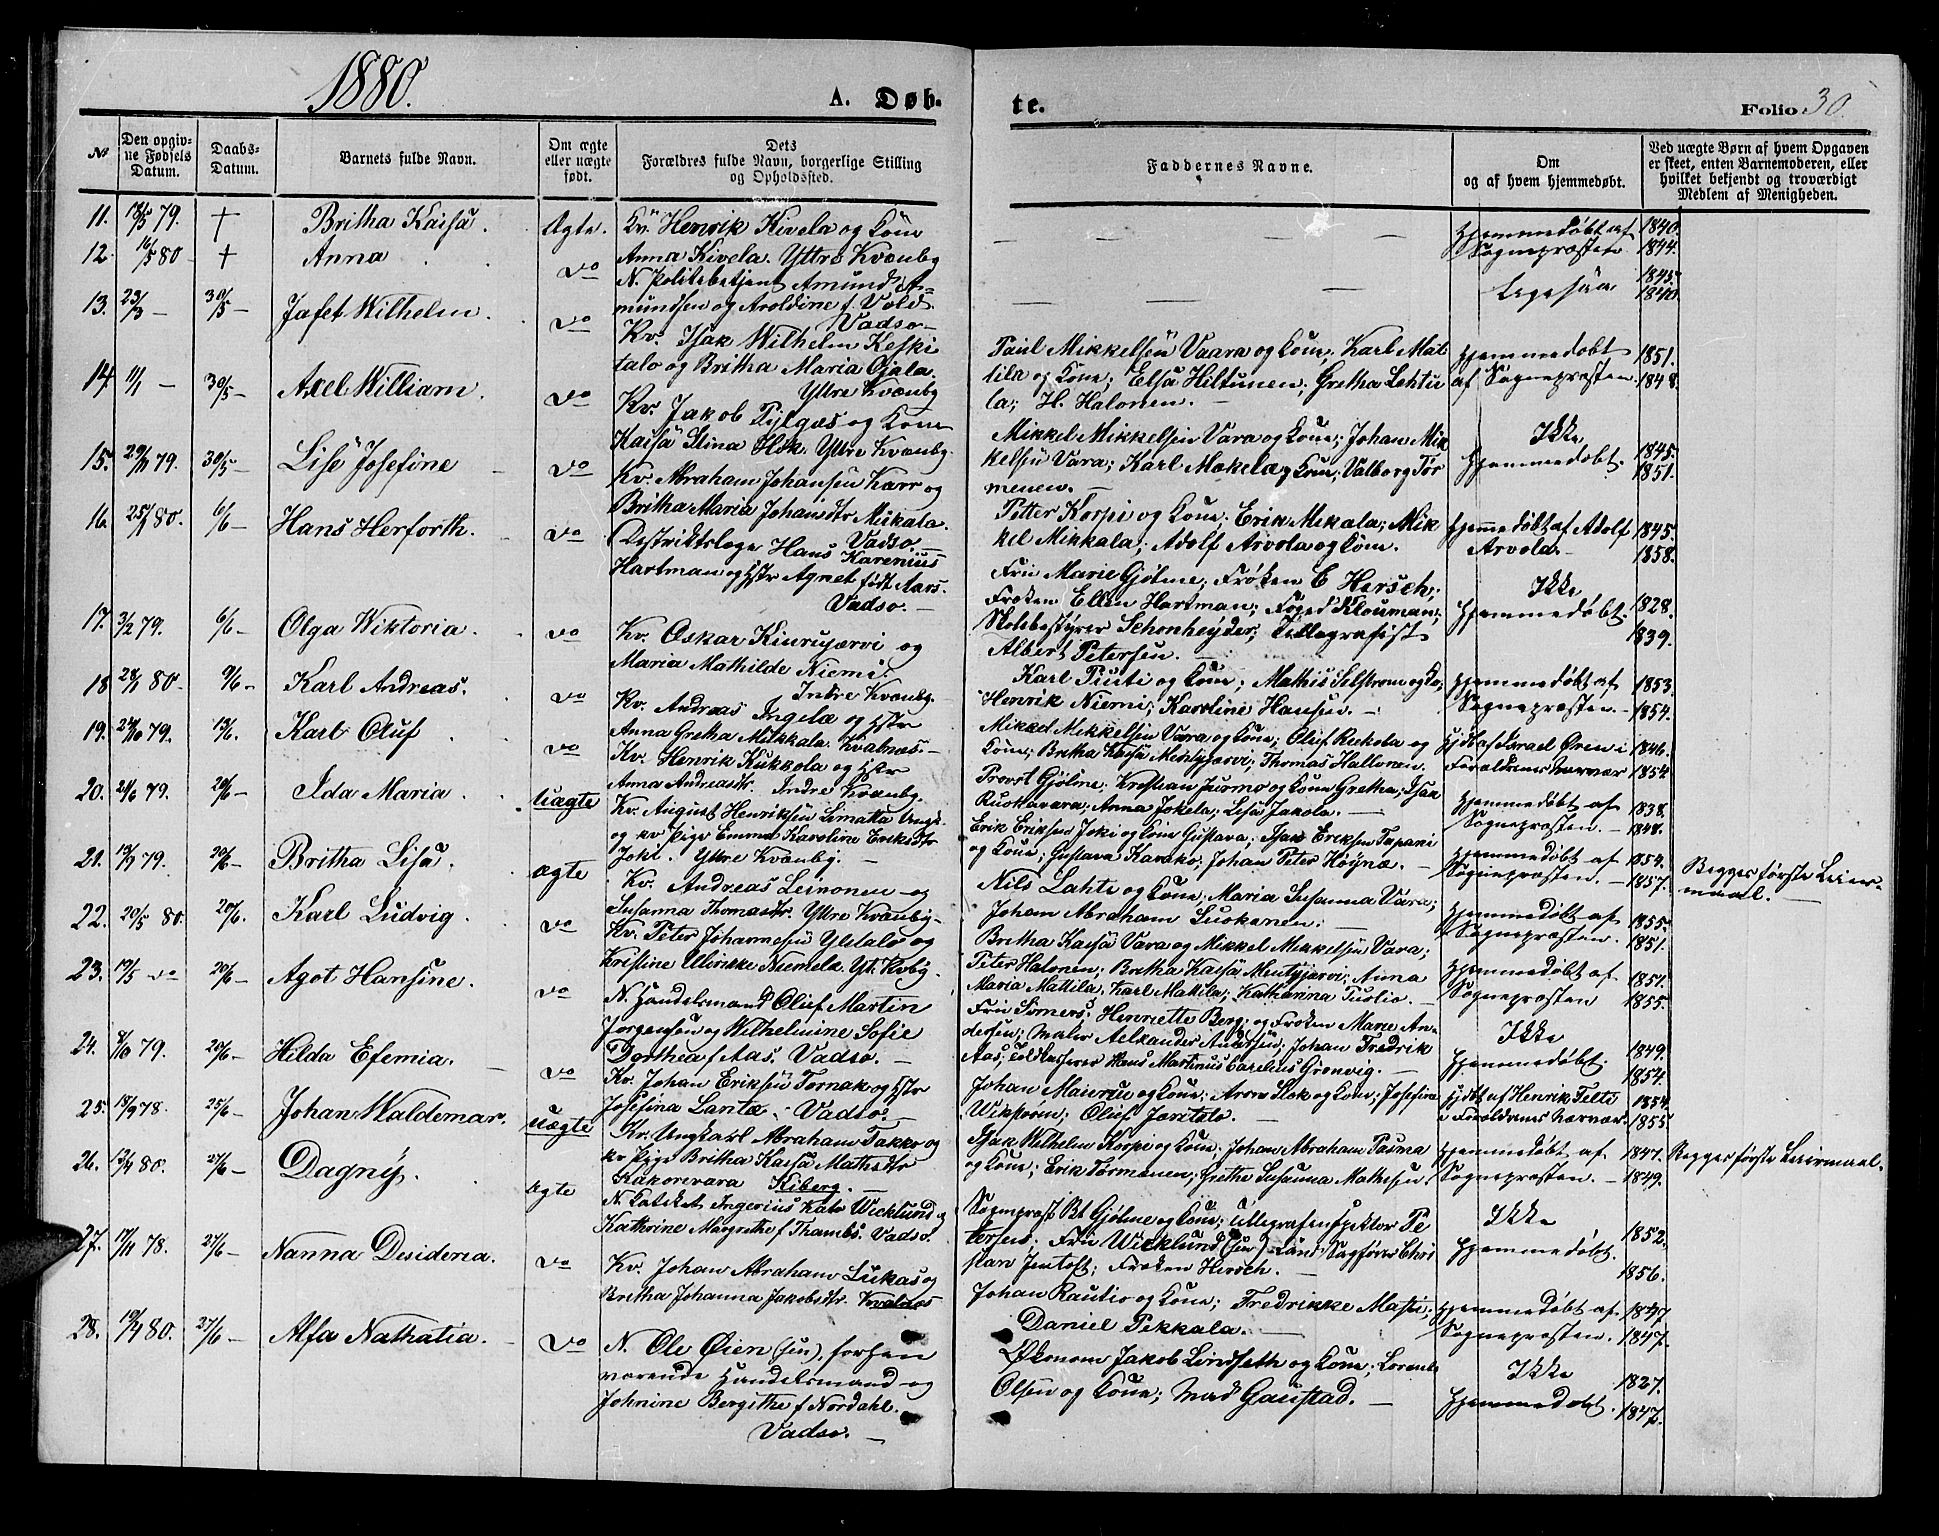 1880.
A. Døb-
te.
Folio 30.
No
Den opgiv-
ne Fødsels
Datum.
Daabs-
Datum.
Barnets fulde Navn.
Om ægte
eller uægte
født.
Dets
Forældres fulde Navn, borgerlige Stilling
og Opholdssted.
Faddernes Navne.
Om
og af hvem hjemmedøbt.
Ved uægte Børn af hvem Opgaven
er skeet, enten Barnemoderen, eller
hvilket bekjendt og troværdigt
Medlem af Menigheden.
11. 79. + Britha Kaisa. Ægte. Kv. Henrik Kivela og Kone
Anna Kivela. Yttre Kvænby
— — — Hjemmedøbt af
Sognepræsten 1840.
1844.
12. 16/5 80 + Anna do N. Politibetjent Amund A-
mundsen og Aroldine f. Vold
Vadsø —
— — — Ligesaa 1845.
1840.
13. 23/3 — 30/5 — Jafet Wilhelm. do Kv. Isak Wilhelm Keski
talo og Britha Maria Ojala.
Yttre Kvænby
Paul Mikkelsen Vaara og Kone; Karl Mat
tila og Kone; Elsa Hiltunen; Gretha Lehtu
la; H. Halonen. —
Hjemmedøbt
af Sognepræsten. 1851.
1848.
14. 11/1 — 30/5 — Axel William. do Kv. Jakob Pylgas og Kone
Kaisa Stina Slok. Yttre Kvænby.
Mikkel Mikkelsen Vara og Kone; Johan Mik
kelsen Vara; Karl Makela og Kone; Valborg Tor
menen. —
Ikke
Hjemmedøbt. 1845.
1851.
15. 79. 30/5 — Lise Josefine do Kv. Abraham Johansen Karr og
Britha Maria Johansdtr Mikala.
Vadsø
Petter Korpi og Kone; Erik Mikala; Mik
kel Mikkala; Adolf Arvola og Kone.
Hjemmedøbt af Adolf
Arvola — 1845.
1858.
16. 25/1 80. 6/6 — Hans Herforth. do Distriktslæge Hans Karenius
Hartman og Hstr Agnet født Aars.
Vadsø. —
Fru Marie Gjølme; Frøken E. Hersch;
Frøken Ellen Hartman; Foged Klouman;
Skolebestyrer Schønheyder; Tellegrafist
Albert Petersen. —
Ikke
Hjemmedøbt. 1828.
1839.
17. 3/2 79. 6/6 — Olga Wiktoria. do Kv. Oskar Kinrujervi og
Maria Mathilde Niemi.
Indre Kvænby.
Karl Puuti og Kone; Mathis Selstrøm og do;
Henrik Niemi; Karoline Hansen. —
Hjemmedøbt af
Sognepræsten. — 1853.
1854.
18 28/1 80. 9/6 — Karl Andreas. do Kv. Andreas Ingela og Hstr
Anna Gretha Mikkala. Kvalnæs —
Mikkel Mikkelsen Vara og Kone; Oluf Riekola og
Kone; Britha Kaisa Mentyjarvi; Thomas Hallonen.
Hjdt af Israel Øren i
Forældrenes Nærvær 1846.
1854
19. 79. 13/6. Karl Oluf do Kv. Henrik Kukkola og Hstr
Anna Andreasdtr. Indre Kvænby.
Provst Gjølme; Kristian Juomo og Kone Gretha; Isak
Ruokavara; Anna Jokela; Lisa Jakola. —
Hjemmedøbt af
Sognepræsten. — 1838.
1848.
20. 79. 20/6 — Ida Maria. Uægte Kv. August Henriksen Limatta Ungk.
og kv. Pige Emma Karoline Eriksdtr
Joki. Yttre Kvænby. —
Erik Eriksen Joki og Kone Gustava; Isak Eriksen Tapani
og Kone; Gustava Karako; Johan Peter Høynæ. —
Hjemmedøbt af
Sognepræsten. — 1854.
1857.
Begges første Leier-
maal. —
21. 79. 20/6 — Britha Lisa. Ægte Kv. Andreas Leinonen og
Susanna Thomasdtr. Yttre Kvænby.
Nils Lahti og Kone; Maria Susanna Vara;
Johan Abraham Suokanen. —
Hjemmedøbt af
Sognepræsten. 1855.
1851.
22. 20/5 80. 20/6. Karl Ludvig. do Kv. Peter Johannesen Yletalo og
Kristine Ulrikke Niemela. Yt. Kvby.
Britha Kaisa Vara og Mikkel Mikkelsen Vara;
Peter Halonen; Britha Kaisa Mentyjarvi; Anna
Maria Mattila; Karl Mattila; Katharina Tuolio. —
Hjemmedøbt af
Sognepræsten 1851.
1855.
23. 19/5 do 20/6 — Agot Hansine. do N. Handelsmand Oluf Martin
Jørgensen og Wilhelmine Sofie
Dorthea f Aas. Vadsø. —
Fru Somers; Henriette Berg; og Frøken Marie An-
dersen; Maler Aleksander Andersen; Johan Fredrik
Aas; Toldkasserer Hans Martinus Carelius Grønvig. —
Ikke
Hjemmedøbt. 1849.
1854.
24. 79. 20/6 — Hilda Efemia. do Kv. Johan Eriksen Tornak og Hstr
Josefina Lantæ. Vadsø. —
Johan Maieren og Kone; Aron Slok og Kone; Josefine
Wikstrøm; Oluf Jaretalo.
Hjdt af Henrik Felti
i Forældrenes Nærvær. 1854.
1855
25. 18/9 78. 25/6 — Johan Waldemar. Uægte Kv. Ungkarl Abraham Takko og
kv Pige Britha Kaisa Mathisdtr
Kakorivara Kiberg. —
Isak Wilhelm Korpi og Kone; Johan Abraham Pasma
og Kone; Erik Tormenen; Grethe Susanna Mathisen
Hjemmedøbt af
Sognepræsten. — 1847.
1849.
Begges første Leiermaal.
26. 80. 27/6 — Dagny. Ægte N. Kateket Ingerius Kato Wicklund og
Kathrine Margrethe f Thambs. Vadsø.
Sognepræst Bt Gjølme og Kone; Tellegrafinspektør Pe
tersen; Fru Wicklund (sen) Lands. Sagfører Chri
stian Jentoft; Frøken Hirsch. —
Ikke
Hjemmedøbt. 1852.
1856.
27. 78. 27/6 — Nanna Desideria. do Kv. Johan Abraham Lukas og
Britha Johanna Jakobsdtr. Kvalnæs
Johan Rautio og Kone; Fredrikke Masu;
Daniel Pekkala. —
Hjemmedøbt af
Sognepræsten. 1847
1847.
28. 80. 27/6 — Alfa Nathalia. do N. Ole Øien (sen), forhen
værende Handelsmand og
Johnine Bergithe f Nordahl.
Vadsø. —
Økonom Jakob Lindseth og Kone; Lorents
Olsen og Kone; Mad Gaustad. —
Ikke
Hjemmedøbt. 1827.
1847.